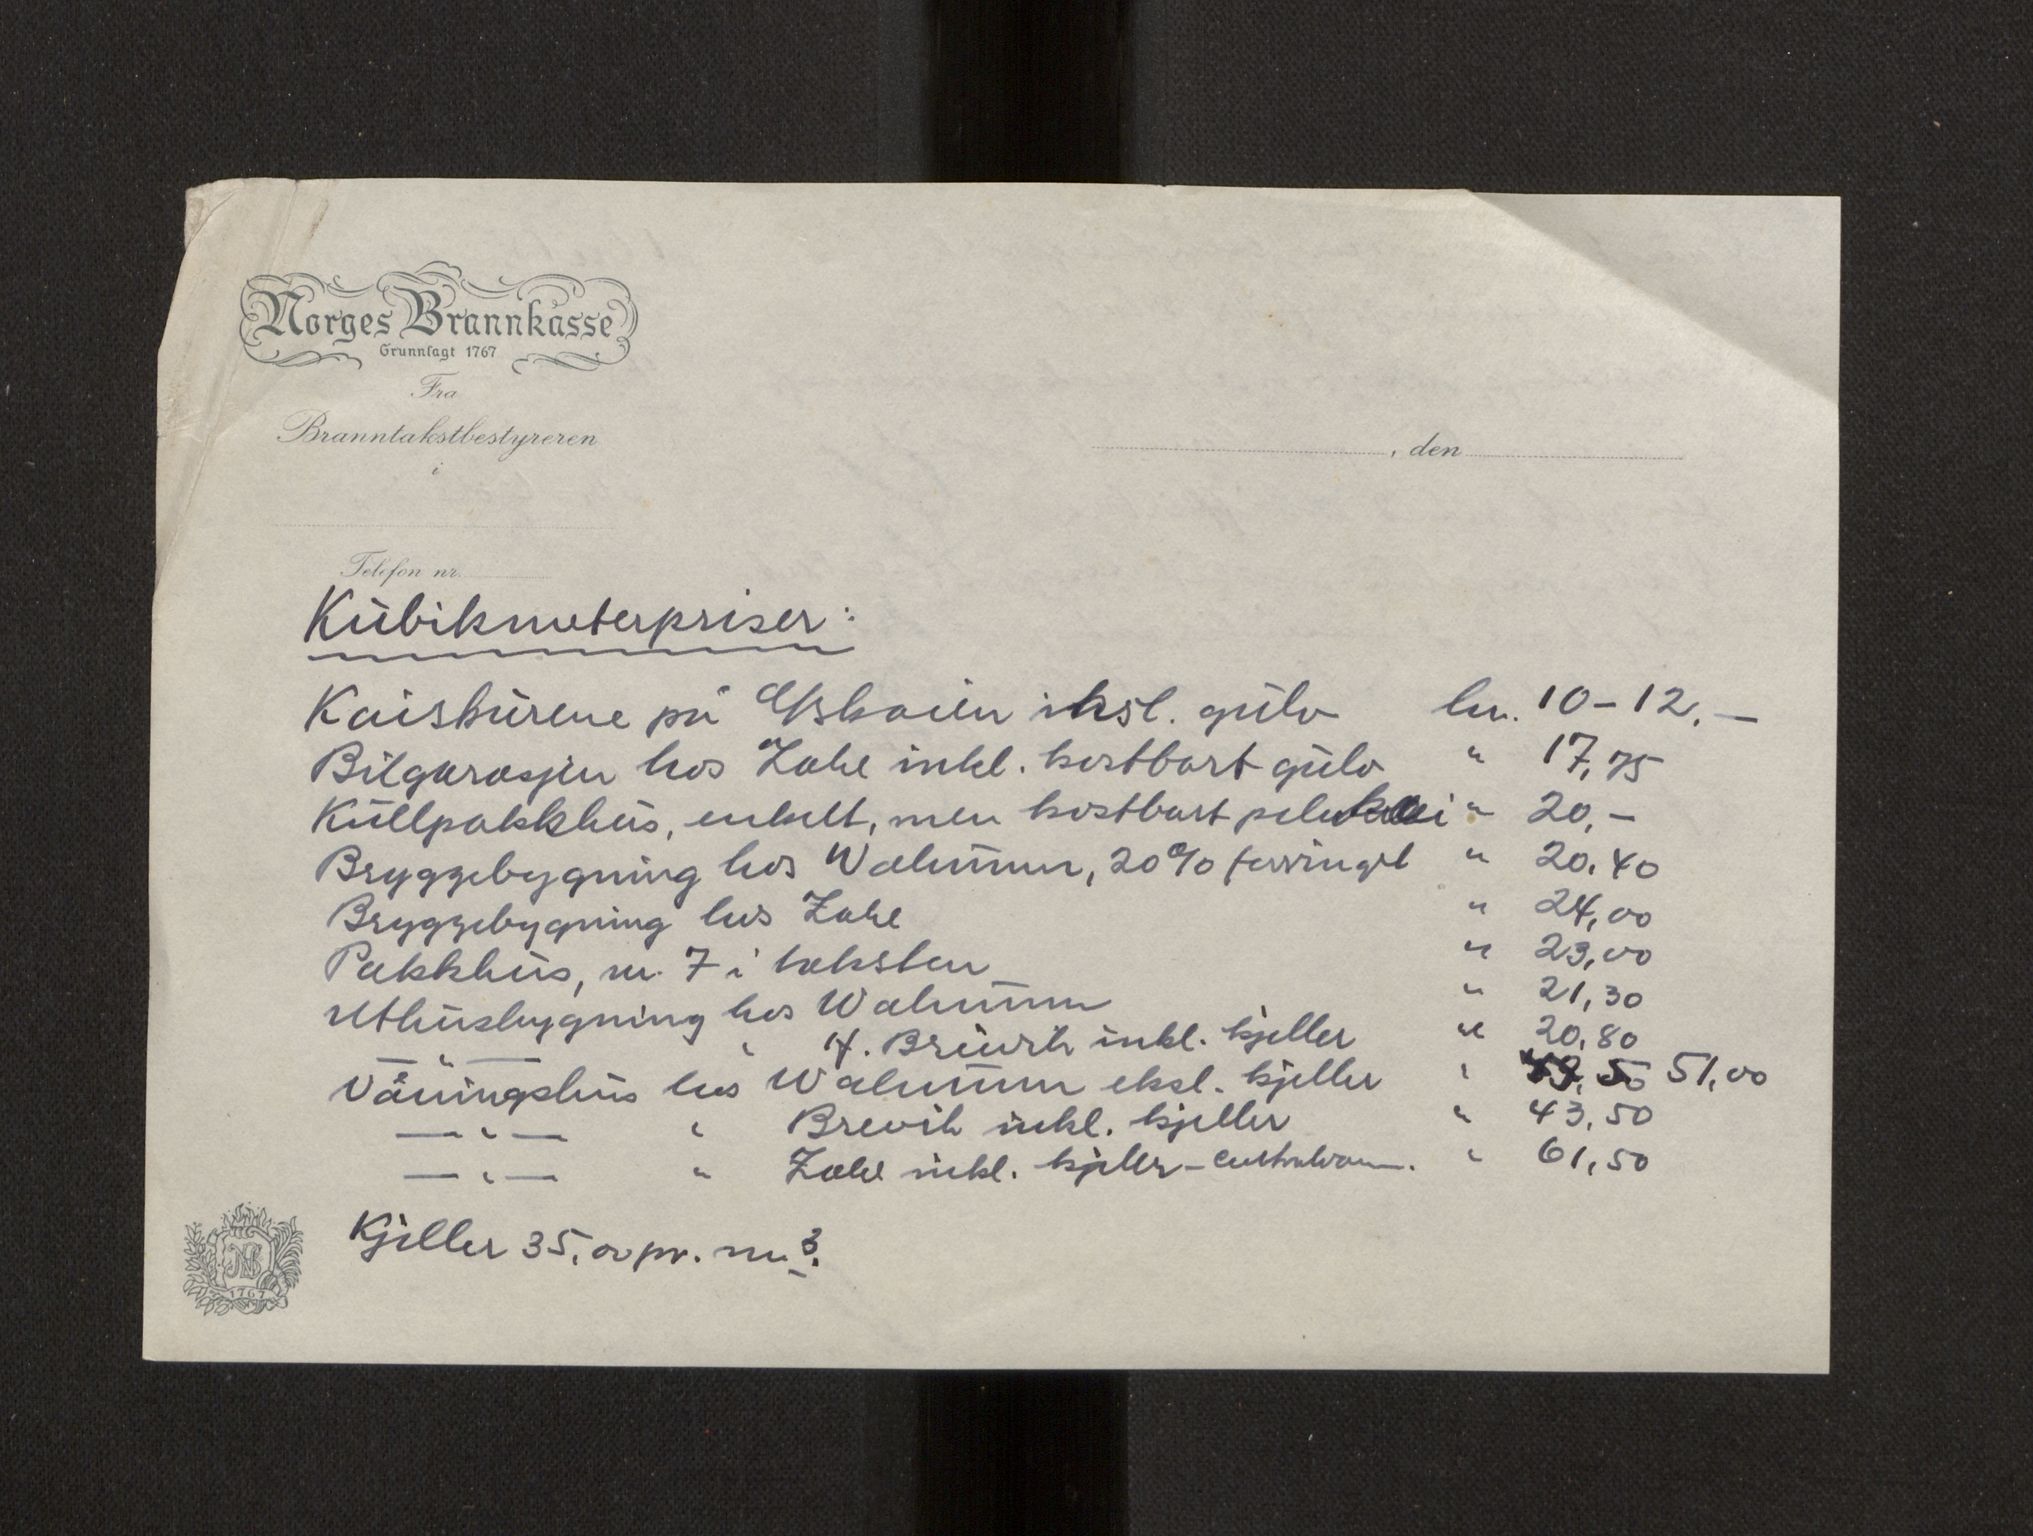 Norges Brannkasse
Grunnlagt 1767
Fra
Branntakstbestyreren
i
, den
Telefon nr.
Kubikmeterpriser:
Kaiskurene på D/Skaien eksl. gulv kr. 10-12.—
Bilgarasjen hos Zahl inkl. kostbart gulv " 17,75
Kullpakkhus, enkelt, men kostbart pelekai " 20,-
Bryggebygning hos Walnum, 20% forringel " 20,40
Bryggebygning hos Zahl " 24,00
Pakkhus, nr. 7 i taksten " 23,00
Uthusbygning hos Walnum " 21,30
— " — " H. Brevik inkl. kjeller " 20,80
Våningshus hos Walnum eksl. kjeller " 51,00
— " — " Brevik inkl. kjeller " 43,50
— " — " Zahl inkl. kjeller - " 61,50
Kjeller 35,00 pr. m3.
NB
1767